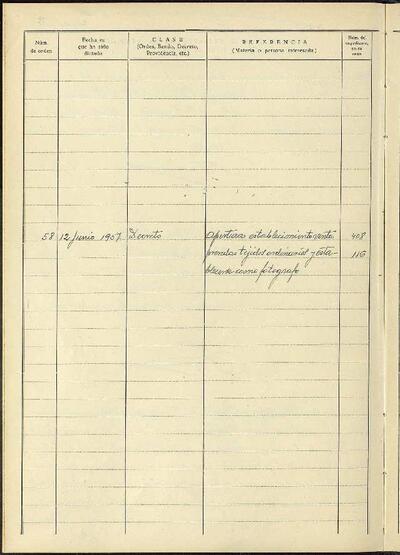 Núm. de orden
Fecha en que ha sido dictado
CLASE
(Orden, Bando, Decreto, Providencia, etc.)
REFERENCIA
(Materia o persona interesada)
Núm. del expediente, en su caso
58 12 Junio 1957 Decreto apertura establecimiento venta 408
prendas tejidos ordinarios y esta- 116
blecerse como fotografo